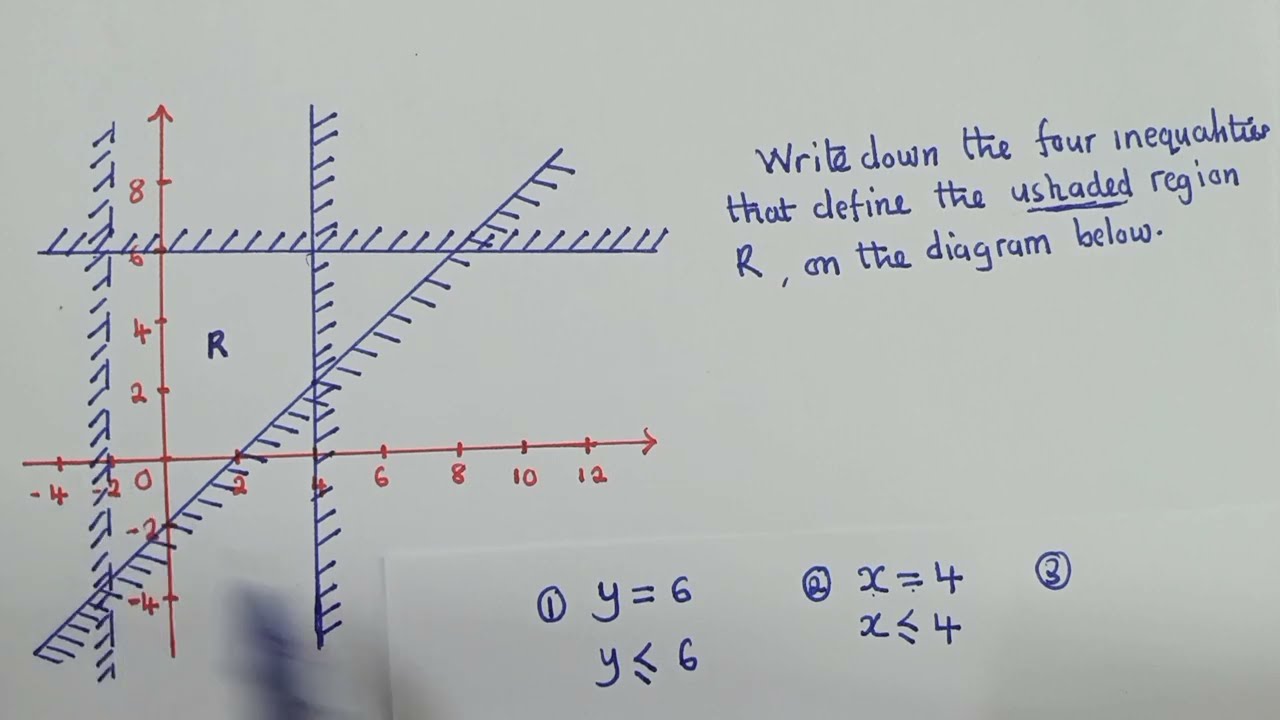 Write down the four inequalities
that define the ushaded region
R, on the diagram below.
8
6
4
R
2
-4 -2 0 2 4 6 8 10 12
-2
-4
① y = 6 ② x = 4 ③
y ≤ 6 x ≤ 4